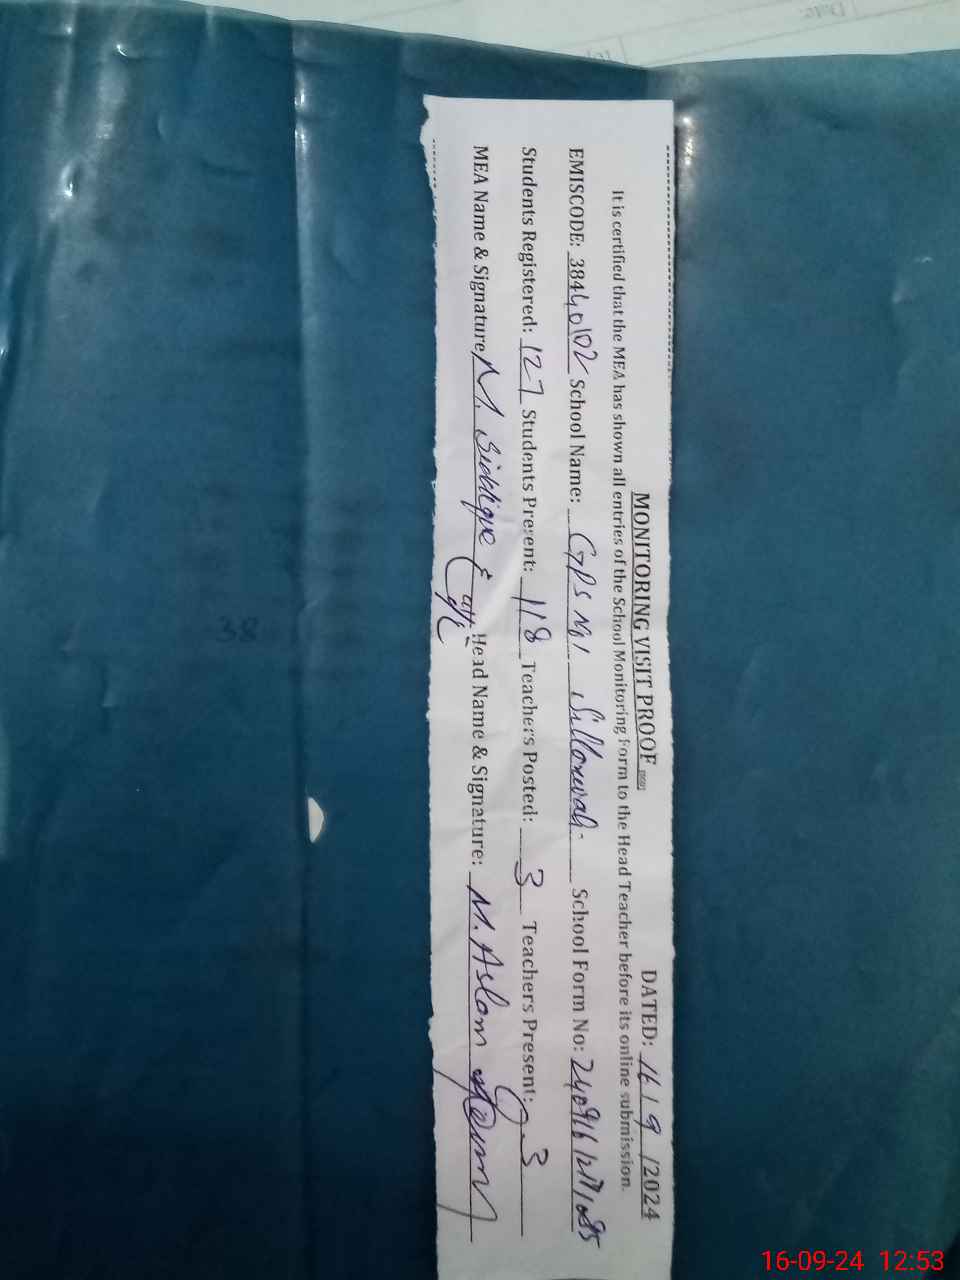 MONITORING VISIT PROOF DATED: 16/9/2024
It is certified that the MEA has shown all entries of the School Monitoring Form to the Head Teacher before its online submission.
EMISCODE: 38440102 School Name: GPS M/ Sillanwali School Form No:
Students Registered: 127 Students Present: 118 Teachers Posted: 3 Teachers Present: 3
MEA Name & Signature M. Siddique Head Name & Signature: M. Aslam
38
Date:
16-09-24 12:53